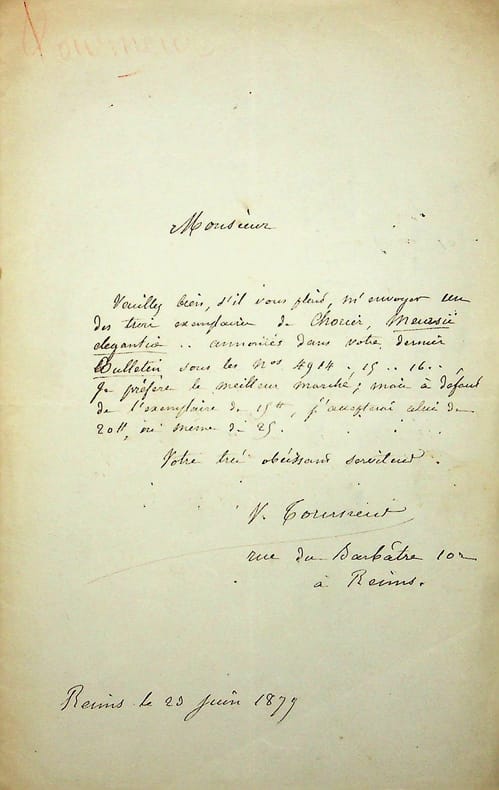 Tourneur
Monsieur
Veuillez bien, s'il vous plaît, m'envoyer un
des trois exemplaires de Chorier, Meursii
elegantiæ .. annoncés dans votre dernier
Bulletin sous les nos 4914 . 15 .. 16 ..
Je préfère le meilleur marché ; mais à défaut
de l'exemplaire de 15 f, j'accepterai celui de
20 f, ou même de 25.
Votre très obéissant serviteur.
V. Tourneur
rue du Barbâtre
à Reims.
Reims le 23 juin 1879